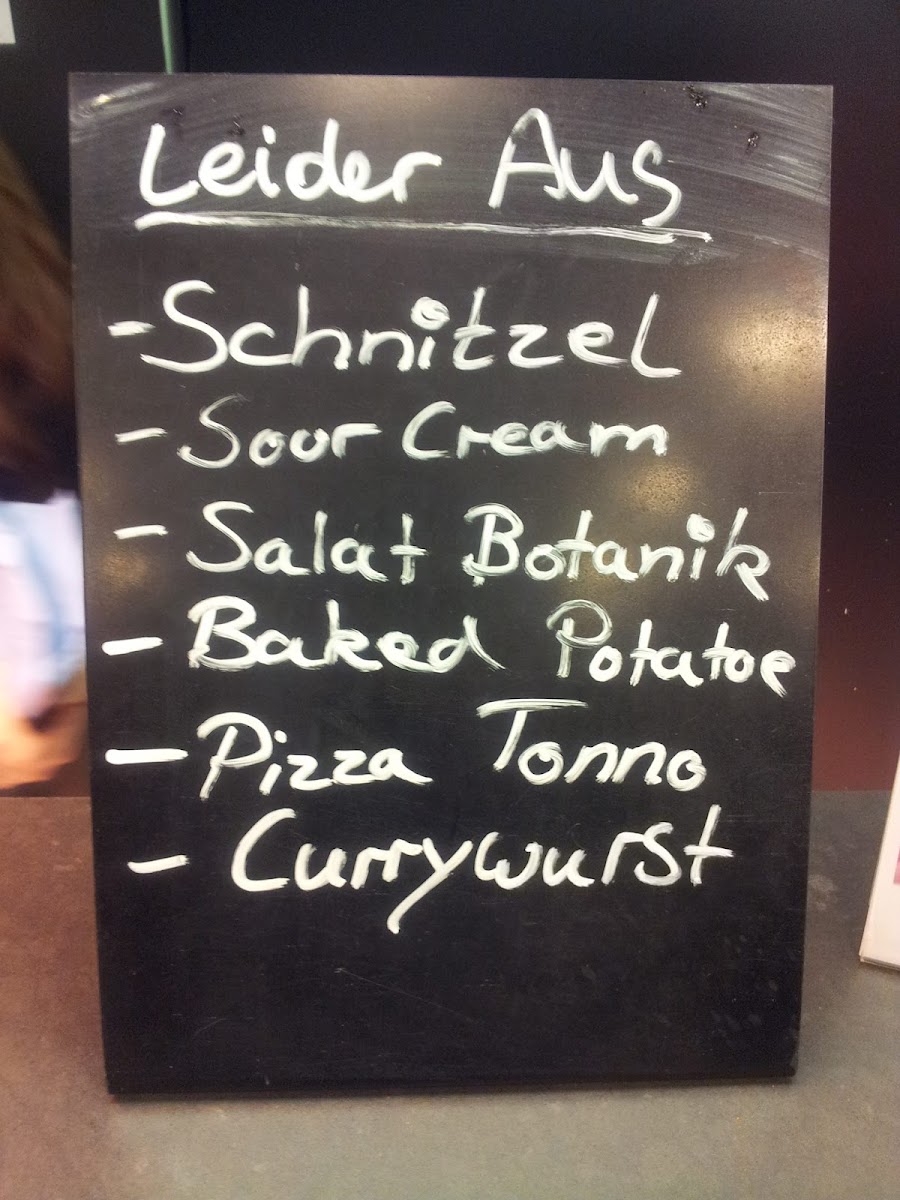 Leider Aus
- Schnitzel
- Sour Cream
- Salat Botanik
- Baked Potatoe
- Pizza Tonno
- Currywurst